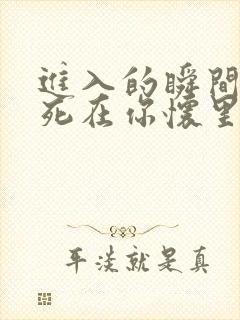 進入的瞬間
死在你懷里
平淡就是真